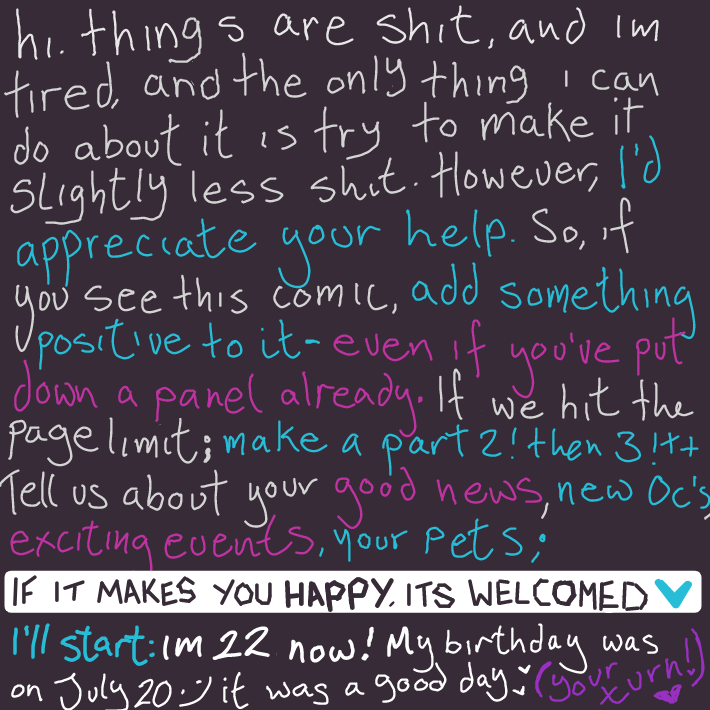 hi. things are shit, and im
tired, and the only thing i can
do about it is try to make it
slightly less shit. However, I'd
appreciate your help. So, if
you see this comic, add something
positive to it- even if you've put
down a panel already. If we hit the
page limit; make a part 2! then 3!++
Tell us about your good news, new Oc's,
exciting events, your pets;
IF IT MAKES YOU HAPPY. ITS WELCOMED
I'll start: im 22 now! My birthday was
on July 20 :-) it was a good day. (your turn!)